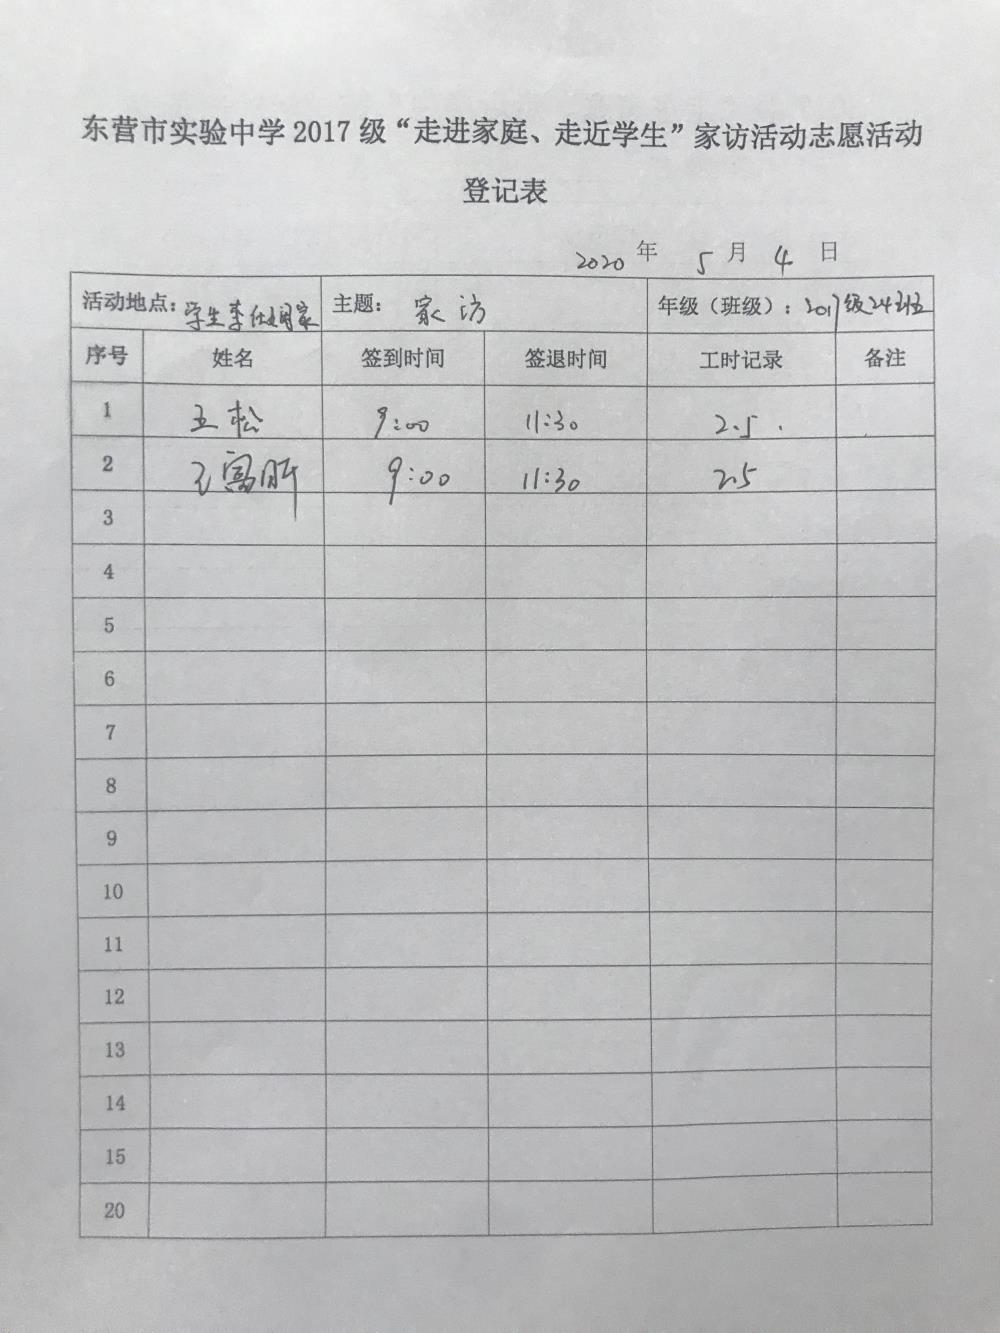 东营市实验中学2017级“走进家庭、走近学生”家访活动志愿活动
登记表
2020 年 5 月 4 日
活动地点：学生李仕家 主题：家访 年级（班级）：2017级24班
序号 姓名 签到时间 签退时间 工时记录 备注
1 王松 9:00 11:30 2.5
2 9:00 11:30 2.5
3
4
5
6
7
8
9
10
11
12
13
14
15
20